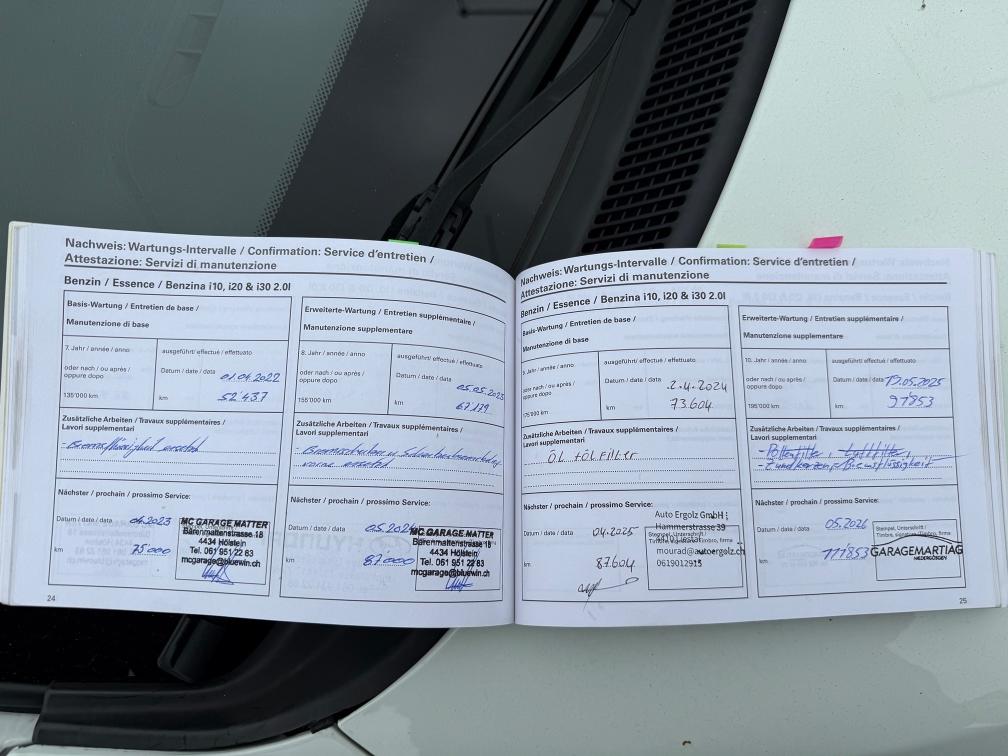 Nachweis: Wartungs-Intervalle / Confirmation: Service d'entretien /
Attestazione: Servizi di manutenzione
Benzin / Essence / Benzina i10, i20 & i30 2.0l
Basis-Wartung / Entretien de base /
Manutenzione di base
7. Jahr / année / anno
ausgeführt/ effectué / effettuato
oder nach / ou après /
oppure dopo
Datum / date / data 01.04.2022
135'000 km
km 52'437
Zusätzliche Arbeiten / Travaux supplémentaires /
Lavori supplementari
- Bremsflüssigkeit ersetzt
Nächster / prochain / prossimo Service:
Datum / date / data 04.2023
km 75000
MC GARAGE MATTER
Bärenmattenstrasse 18
4434 Hölstein
Tel. 061 951 22 83
mcgarage@bluewin.ch
24
Erweiterte-Wartung / Entretien supplémentaire /
Manutenzione supplementare
8. Jahr / année / anno
ausgeführt/ effectué / effettuato
oder nach / ou après /
oppure dopo
Datum / date / data
155'000 km
km 67.179
Zusätzliche Arbeiten / Travaux supplémentaires /
Lavori supplementari
vorne ersetzt
Nächster / prochain / prossimo Service:
Datum / date / data 05.2024
km 87.000
MC GARAGE MATTER
Bärenmattenstrasse 18
4434 Hölstein
Tel. 061 951 22 83
mcgarage@bluewin.ch
Nachweis: Wartungs-Intervalle / Confirmation: Service d'entretien /
Attestazione: Servizi di manutenzione
Benzin / Essence / Benzina i10, i20 & i30 2.0l
Basis-Wartung / Entretien de base /
Manutenzione di base
9. Jahr / année / anno
ausgeführt/ effectué / effettuato
oder nach / ou après /
oppure dopo
Datum / date / data 2.4.2024
175'000 km
km 73.604
Zusätzliche Arbeiten / Travaux supplémentaires /
Lavori supplementari
ÖL + ÖLFILTER
Nächster / prochain / prossimo Service:
Datum / date / data 04.2025
km 87.604
Auto Ergolz GmbH
Hammerstrasse 39
4410 Liestal
mourad@autoergolz.ch
0619012915
Erweiterte-Wartung / Entretien supplémentaire /
Manutenzione supplementare
10. Jahr / année / anno
ausgeführt/ effectué / effettuato
oder nach / ou après /
oppure dopo
Datum / date / data 19.05.2025
195'000 km
km 91853
Zusätzliche Arbeiten / Travaux supplémentaires /
Lavori supplementari
- Pollenfilter, Luftfilter,
- Zundkerzen, Bremsflüssigkeit
Nächster / prochain / prossimo Service:
Datum / date / data 05.2026
km 111853
Stempel, Unterschrift /
Timbre, signature / Timbro, firma
GARAGEMARTIAG
NIEDERGÖSGEN
25